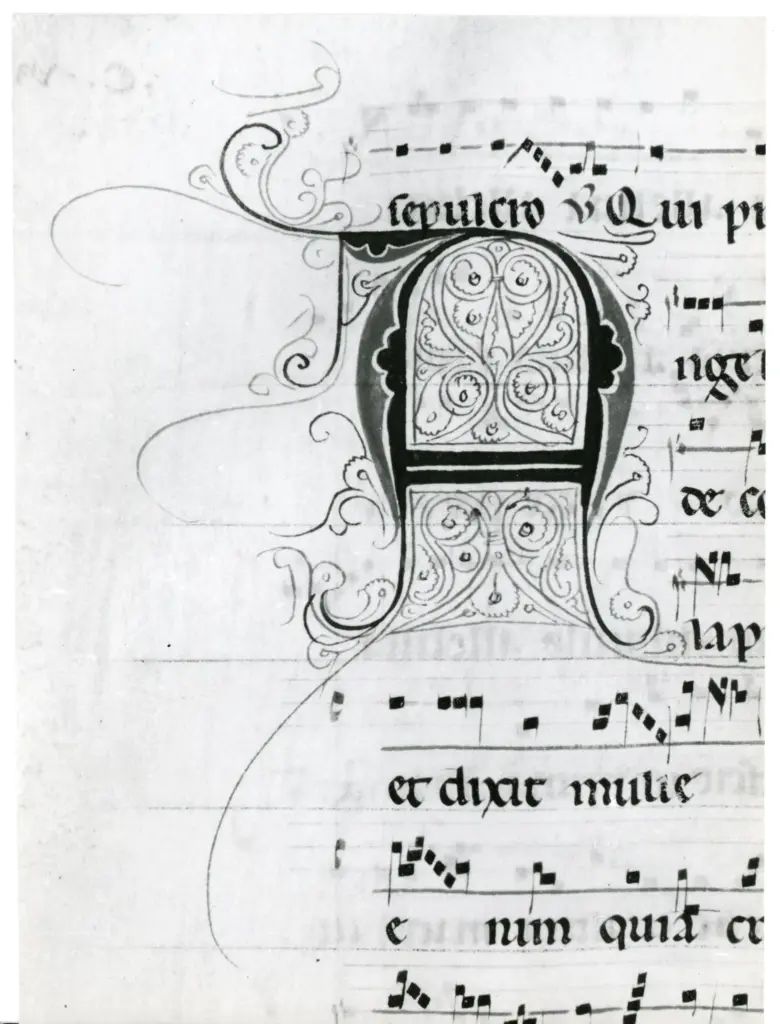 sepulcro ℣ Qui p
A
nge
de c
lap
et dixit mulie
e nim quia cr